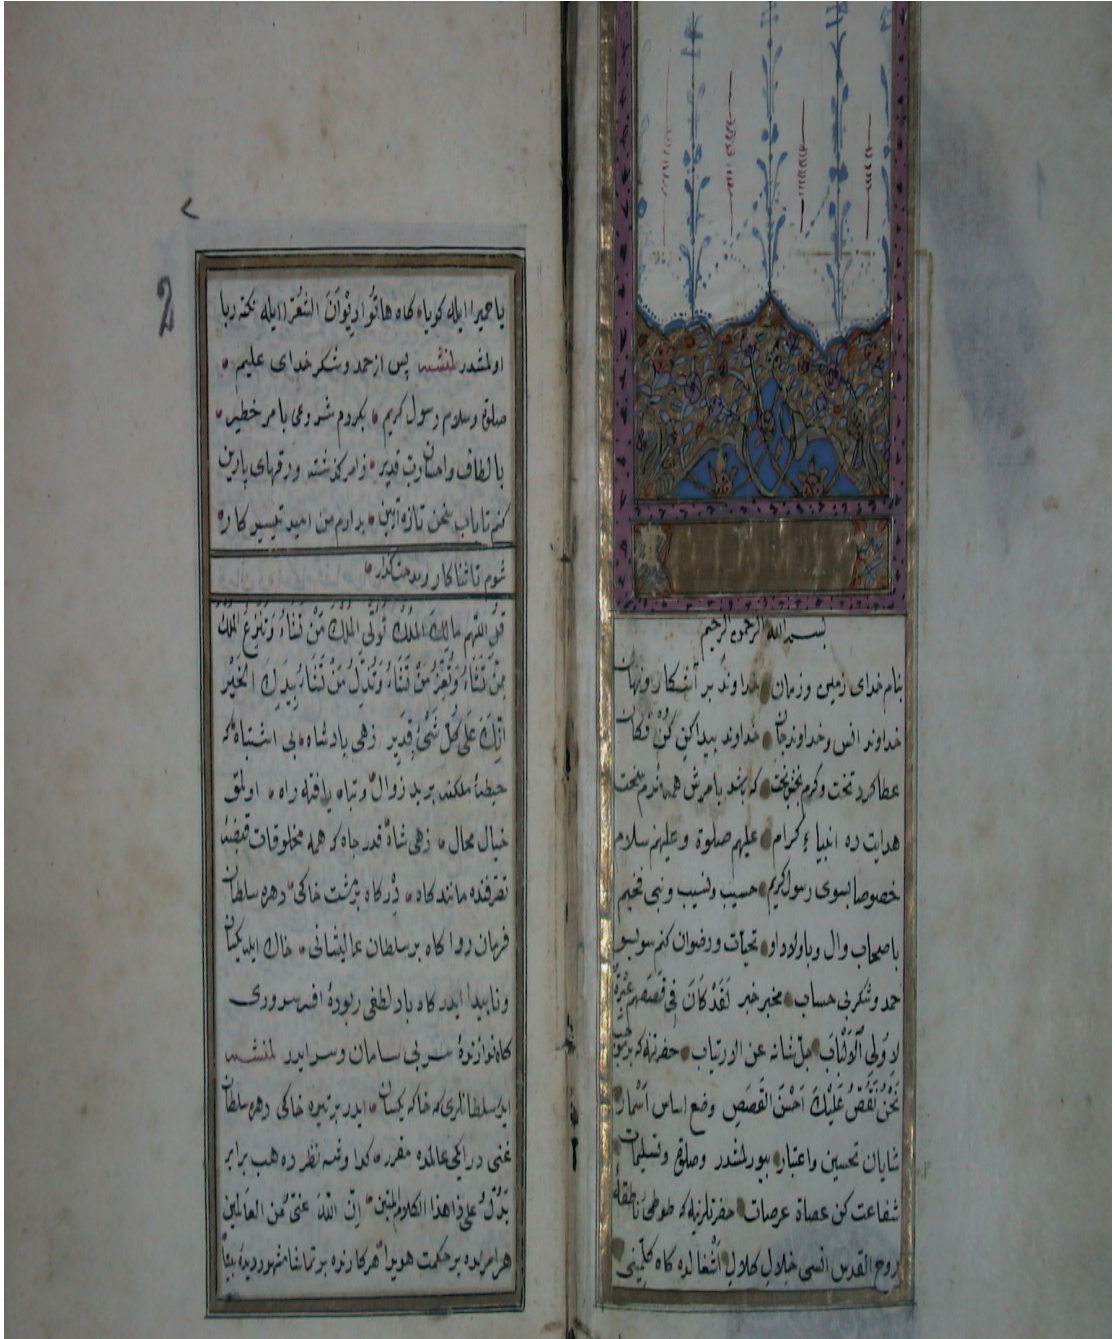 بسم الله الرحمن الرحيم
بنام خدای زمین وزمان خداوند بر آشکار ونهان
خداوند انس وخداوند جان خداوند پیدا کن کن فکان
عطا کرد تخت وکرم نیکبخت که باشد بامرش همه نرم سخت
هدایت ده انبیاء کرام علیهم صلوة وعلیهم سلام
خصوصا بسوی رسول کریم حسیب ونسیب ونبی فخیم
باصحاب وال وباولاد او تحیات ورضوان کنم سوبسو
حمد وشکر بی حساب مخبر خبر لَقَدْ كَانَ فِى قَصَصِهِمْ عِبْرَةٌ
لِاُولِى اْلاَلْبَابِ جل شانه عن الارتیاب حضرتنه که
نَحْنُ نَقُصُّ عَلَيْكَ اَحْسَنَ القَصَصِ وضع اساس اَسْمار
شایان تحسین واعتبار بیورلمشدر وصلوة وتسلیمات
شفاعت کن عصاة عرصات حضرتلرینه که طوطی ناطقهٔ
روح القدس انسی خلال اَشْغالده کاه کلّمینی
یا حمیرا ایله کویا کاه هاتُوا دِیْوَانَ الشُعَرَا ایله نکته ربا
اولمشدر لمنشئه پس از حمد وشکر خدای علیم
صلوة وسلام رسول کریم بکردم شروعی بامر خطیر
بالطاف واحسان رب قدیر زامر کذشته ورقهای پارین
کنم تاباب سخن تازه آیین بدارم من امید تیسیر کاره
شوم تا ثناکار
قُلِ اللّٰهُمَّ مَالِكَ المُلْكِ تُؤْتِى المُلْكَ مَنْ تَشَاءُ وَتَنْزِعُ المُلْكَ
مِمَّنْ تَشَاءُ وَتُعِزُّ مَنْ تَشَاءُ وَتُذِلُّ مَنْ تَشَاءُ بِيَدِكَ الخَيْرُ
اِنَّكَ عَلَى كُلِّ شَىْءٍ قَدِيرٌ زهی پادشاه بی اشتباه که
حیطهٔ ملکنه برید زوال وتباه یافته راه اولمق
خیال محال زهی شاه قدر جاه که همه مخلوقات قبضهٔ
تصرفنده مانند کاه دَرْکاه برمشت خاکی دهره سلطان
فرمان روا کاه بر سلطان عالیشانی خاك ایله یکسان
وناپیدا ایدر کاه باد لطفی ربودهٔ افسر سروری
کاه نوازندهٔ سر بی سامان وسر ایدر لمنشئه
ایدر سلطانلری که خاکه یکسان ایدر بر تیره خاکی دهره سلطان
غنی در ایکی عالمده مقرر کدا وشه نظرده هب برابر
يَدُلُّ على ذا هذا الكلام المبين اِنَّ اللّٰهَ غَنِىٌّ عَنِ العَالَمِينَ
هر امرنده بر حکمت هویدا هر کارنده بر تماشا مشهود دیدهٔ بینا
2